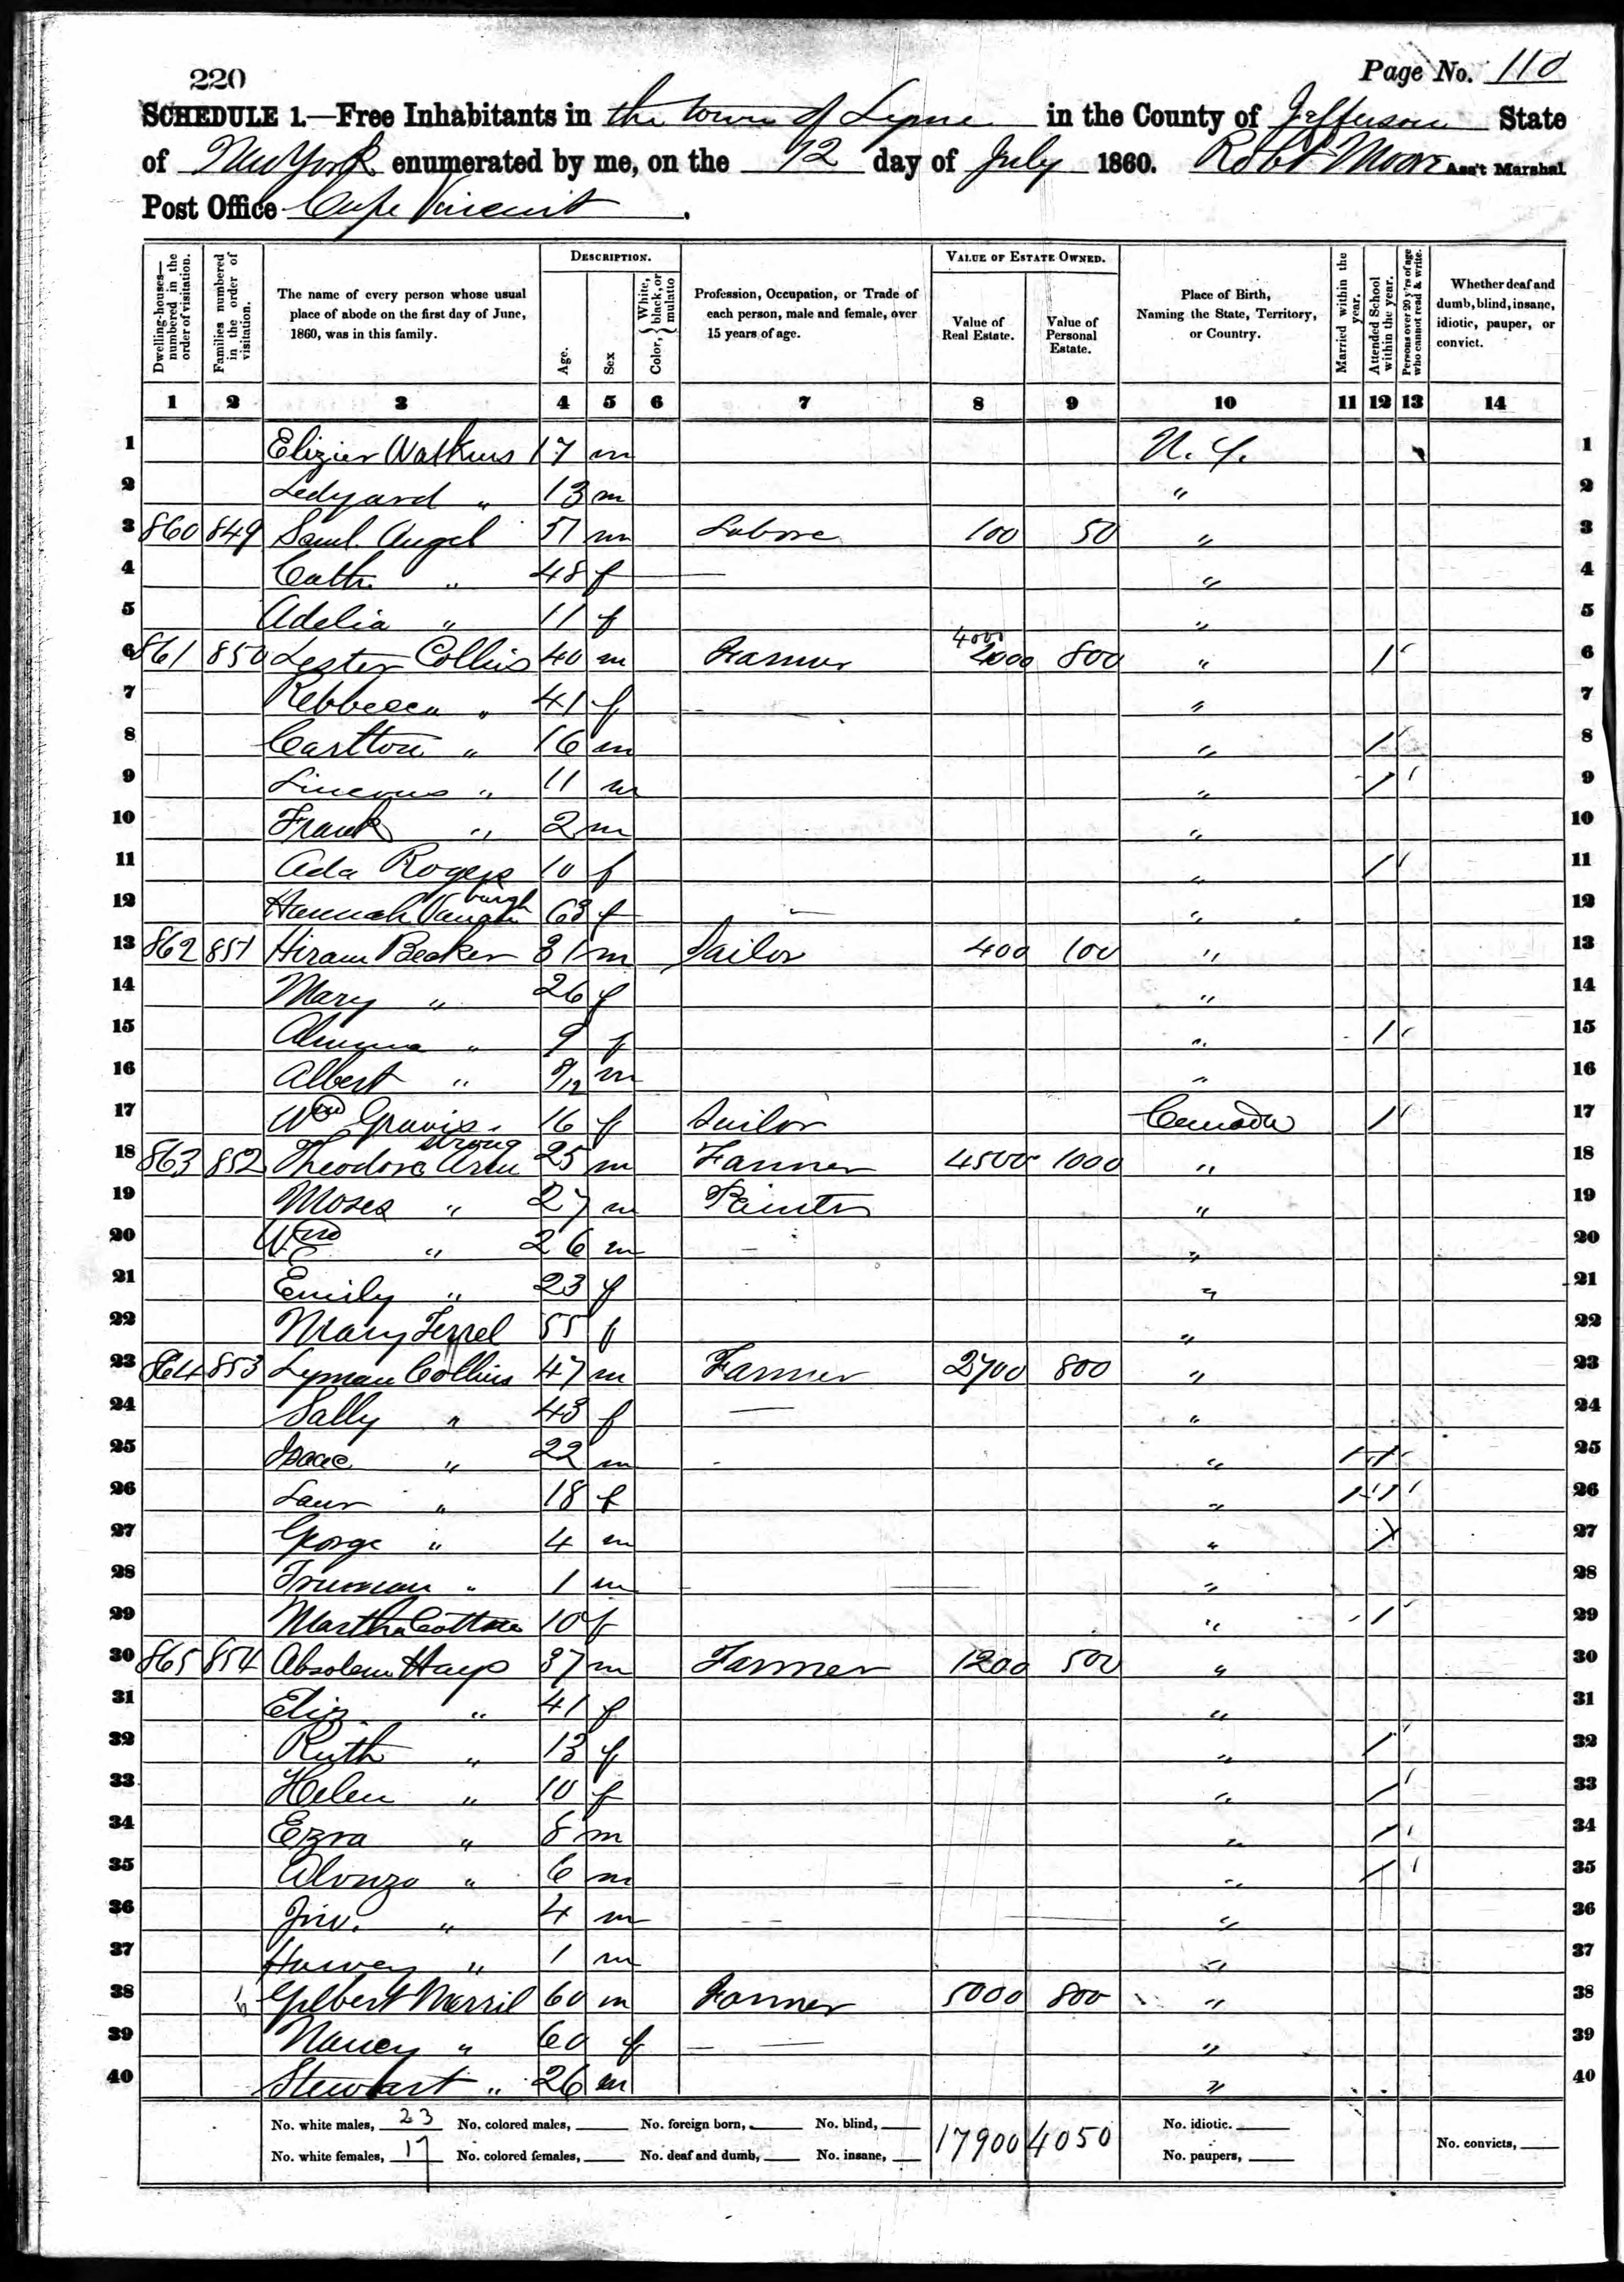 220
Page No. 110
SCHEDULE 1.—Free Inhabitants in the town of Lyme in the County of Jefferson State
of New York enumerated by me, on the 12 day of July 1860. Robt Moore Ass't Marshal
Post Office Cape Vincent.
Dwelling-houses—numbered in the order of visitation.
Families numbered in the order of visitation.
The name of every person whose usual place of abode on the first day of June, 1860, was in this family.
DESCRIPTION.
Age.
Sex
Color, { White, black, or mulatto
Profession, Occupation, or Trade of each person, male and female, over 15 years of age.
VALUE OF ESTATE OWNED.
Value of Real Estate.
Value of Personal Estate.
Place of Birth, Naming the State, Territory, or Country.
Married within the year.
Attended School within the year.
Persons over 20 y'rs of age who cannot read & write.
Whether deaf and dumb, blind, insane, idiotic, pauper, or convict.
1 2 3 4 5 6 7 8 9 10 11 12 13 14
1 Elizier Watkins 17 m N. Y. 1
2 Ledyard " 13 m " 2
3 860 849 Saml. Angel 51 m Labore 100 50 " 3
4 Cath. " 48 f — " 4
5 Adelia " 11 f " 5
4000
6 861 850 Lester Collins 40 m Farmer 800 " / 6
7 Rebbecca " 41 f — " 7
8 Carlton " 16 m " / 8
9 " 11 m " / 9
10 Frank " 2 m " 10
11 Ada Rogers 10 f " / 11
burgh
12 Hannah 63 f — " 12
13 862 851 Hiram Becker 31 m Sailor 400 100 " 13
14 Mary " 26 f " 14
15 " 9 f " / 15
16 Albert " 9/12 m " 16
17 Wm Gravis. 16 f Sailor Canada / 17
strong
18 863 852 Theodore Arm 25 m Farmer 4500 1000 " 18
19 Moses " 27 m Painter " 19
20 Wm E " 26 m — " 20
21 Emily " 23 f " 21
22 Mary Terrel 55 f " 22
23 864 853 Lyman Collins 47 m Farmer 2700 800 " 23
24 Sally " 43 f — " 24
25 Isaac " 22 m - " / / 25
26 Laur " 18 f " / / 26
27 George " 4 m " 27
28 Truman " 1 m " 28
29 Martha Cotton 10 f " / 29
30 865 854 Absolem Hays 37 m Farmer 1200 500 " 30
31 Eliz. " 41 f " 31
32 Ruth " 13 f " / 32
33 Helen " 10 f " / 33
34 Ezra " 8 m " / 34
35 Alonzo " 6 m " / 35
36 " 4 m " 36
37 Harvey " 1 m " 37
38 Gilbert Merril 60 m Farmer 5000 800 " 38
39 Nancy " 60 f — " 39
40 Stewbart " 26 m " 40
No. white males, 23 No. colored males, No. foreign born, No. blind, 17900 4050 No. idiotic.
No. white females, 17 No. colored females, No. deaf and dumb, No. insane, No. paupers, No. convicts,